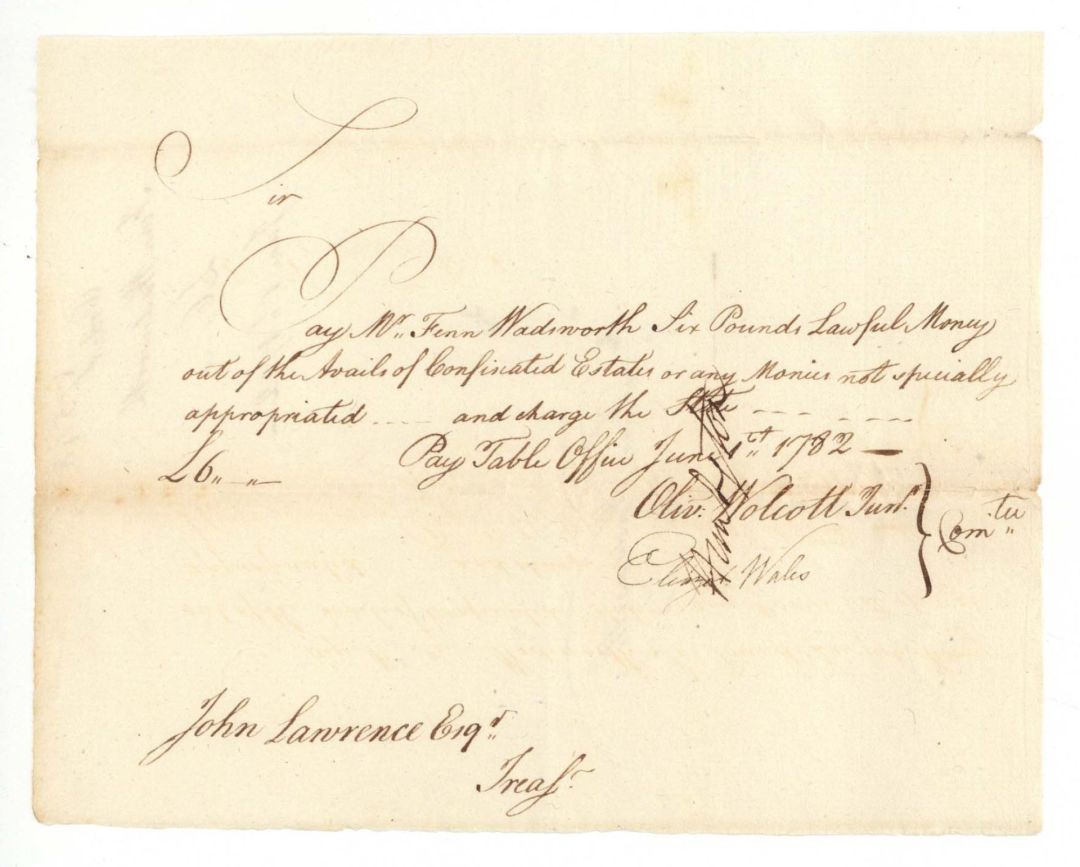 Sir
Pay Mr. Fenn Wadsworth Six Pounds Lawful Money
out of the Avails of Confiscated Estates or any Monies not specially
appropriated ---- and charge the State --- -- ---
£6 „ - „ — Pay Table Office June 1st 1782 —
Oliv. Wolcott Junr. } Comtee
Wales
John Lawrence Esqr.
Treasr